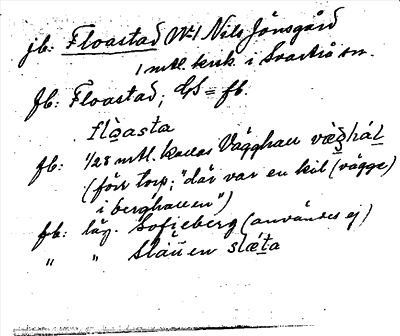 jb: Floastad No 1 Nils Jönsgård
1 mtl. krsk. i Svartrå sn.
fb: Floastad, GS = fb.
flòasta
fb: 1/28 mtl. kallas Vägghall
(förr torp; "där var en kil (vägge)
i berghallen")
fb: läg. Sofieberg (användes ej)
" " slæ̀ta